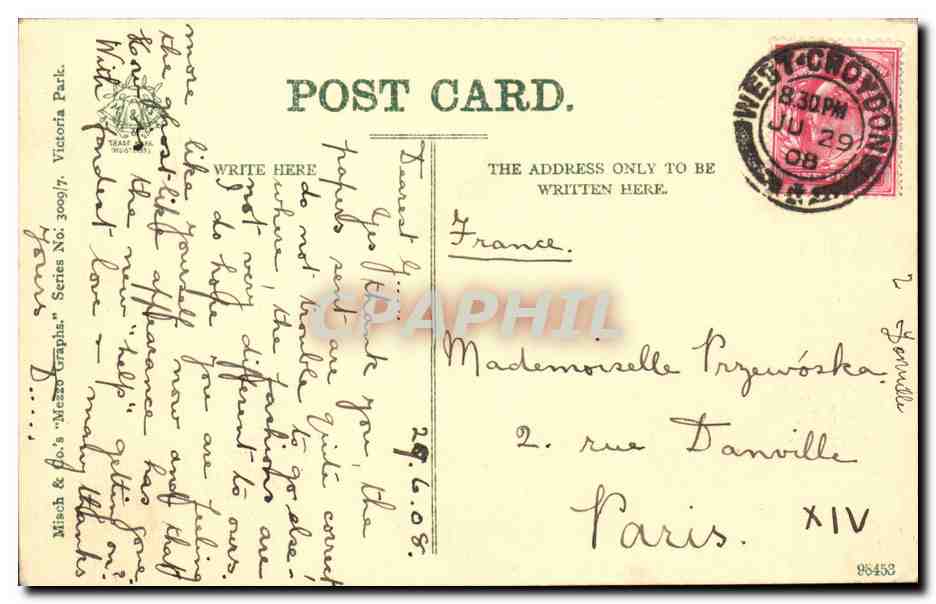 POST CARD.
WRITE HERE
THE ADDRESS ONLY TO BE
WRITTEN HERE.
WEST·CROYDON
8.30 PM
JU 29
08
TRADE MARK
France.
Mademoiselle Przewóska.
2. rue Danville
Paris.
XIV
2 Danville
29.6.08.
Dearest G....
Yes, thank you, the
papers sent are quite correct
do not trouble to go else-
where, the fashions are
not very different to ours.
I do hope you are feeling
like yourself now and that
the ghost-like appearance has gone
more
How is the new "help" getting on?
With fondest love – many thanks
Yours D.....
Misch & Co.'s "Mezzo Graphs." Series No. 3009/7. Victoria Park.
CPAPHIL
95453